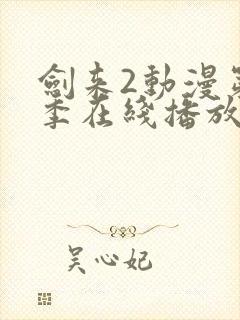 劍来2動漫
季在綫播放
吴心妃